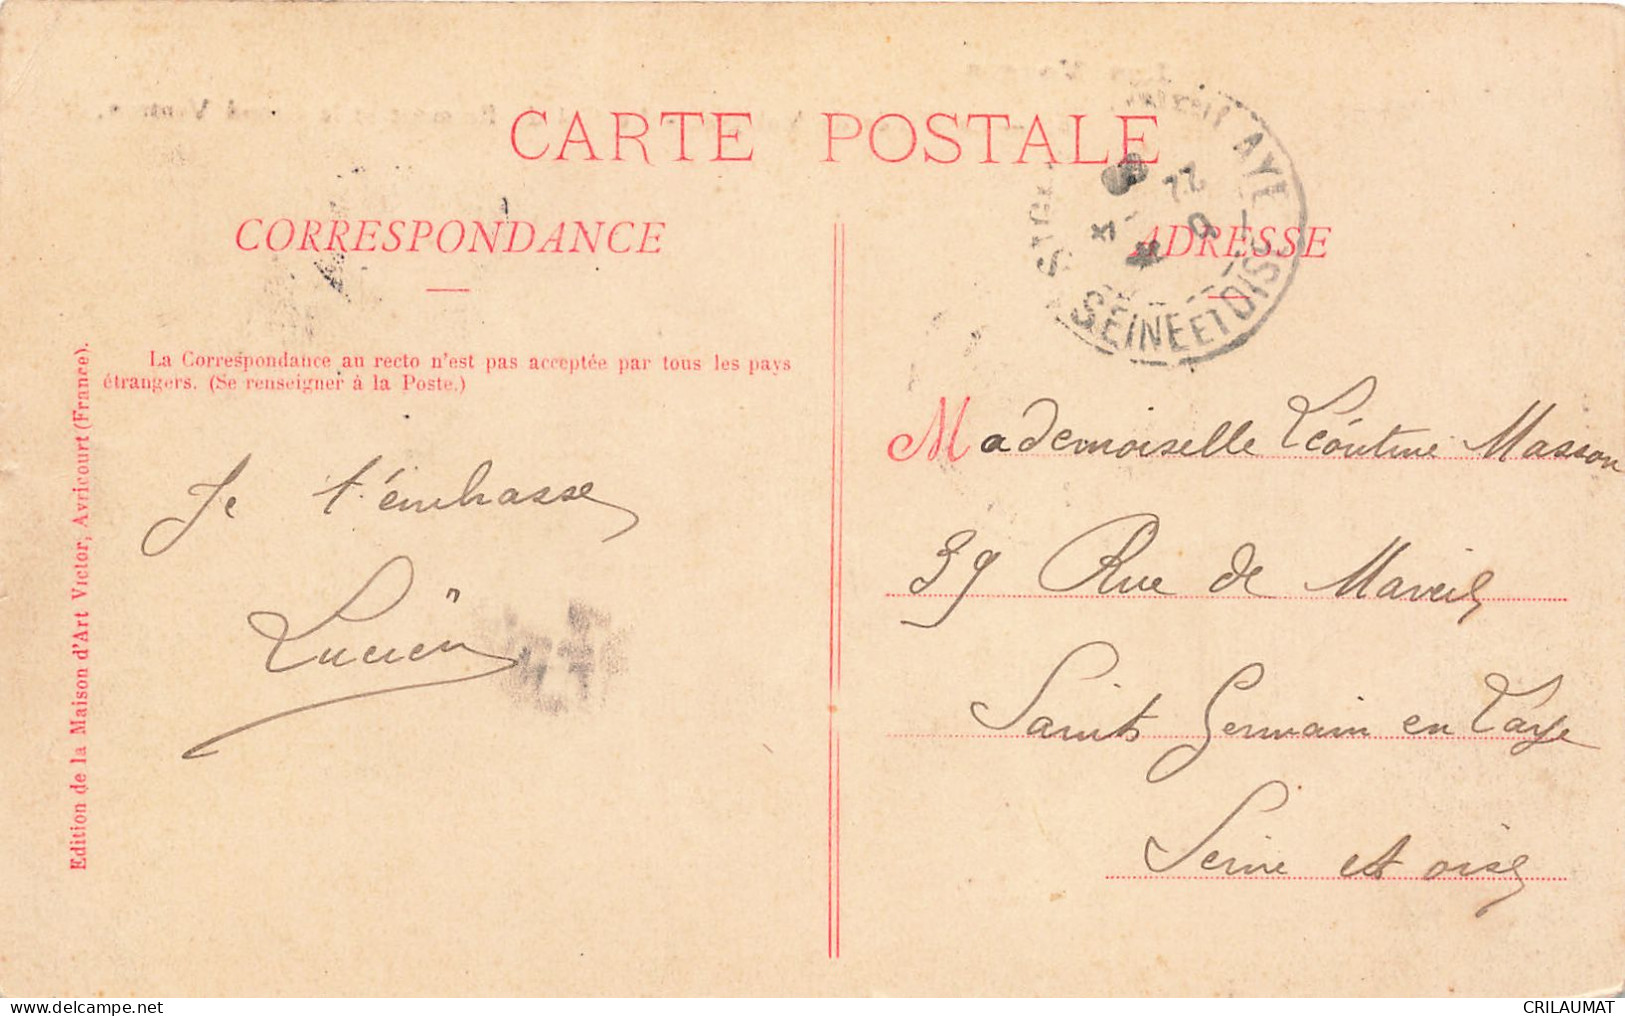 CARTE POSTALE
CORRESPONDANCE
La Correspondance au recto n'est pas acceptée par tous les pays
étrangers. (Se renseigner à la Poste.)
Je t'embrasse
Lucien
Edition de la Maison d'Art Victor, Avricourt (France).
ADRESSE
AYE
SEINE ET OISE
22
Mademoiselle Léontine Masson
39 Rue de Mareil
Saint Germain en Laye
Seine et oise
CRILAUMAT